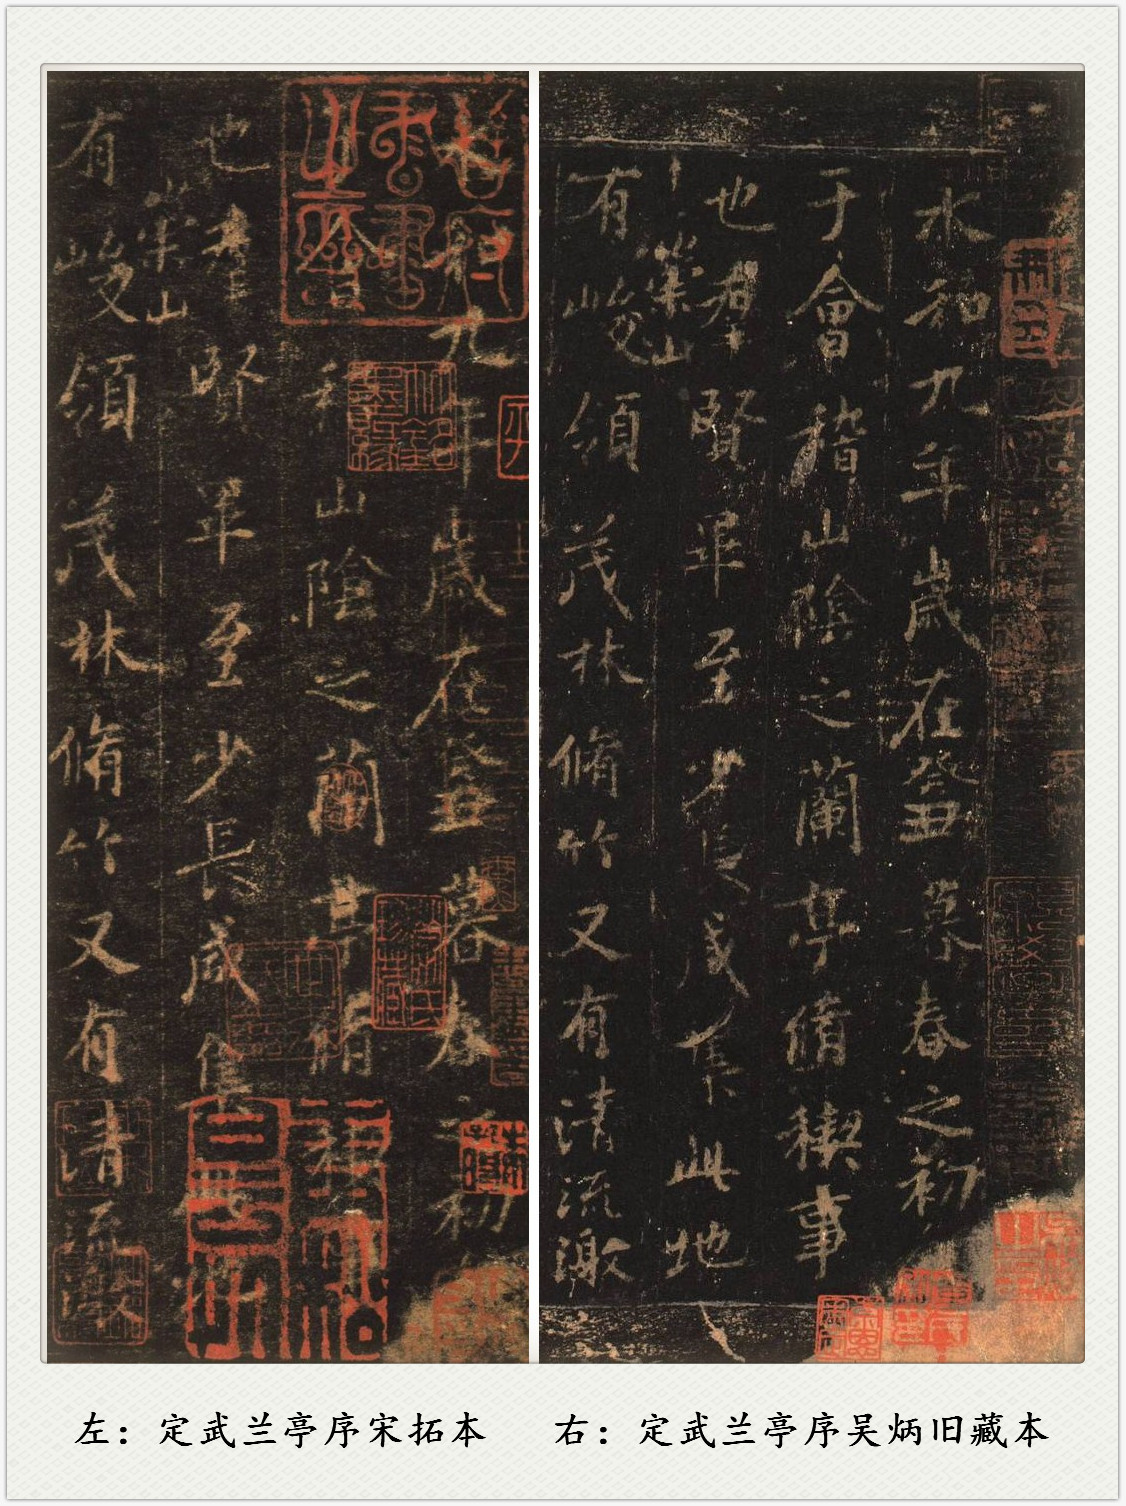 九年歲在癸丑暮春之初
稽山陰之蘭亭脩
也羣賢畢至少長咸集
有崇山峻領茂林脩竹又有清流激
永和九年歲在癸丑暮春之初
于會稽山陰之蘭亭脩稧事
也羣賢畢至少長咸集此地
有崇山峻領茂林脩竹又有清流激
左：定武兰亭序宋拓本
右：定武兰亭序吴炳旧藏本